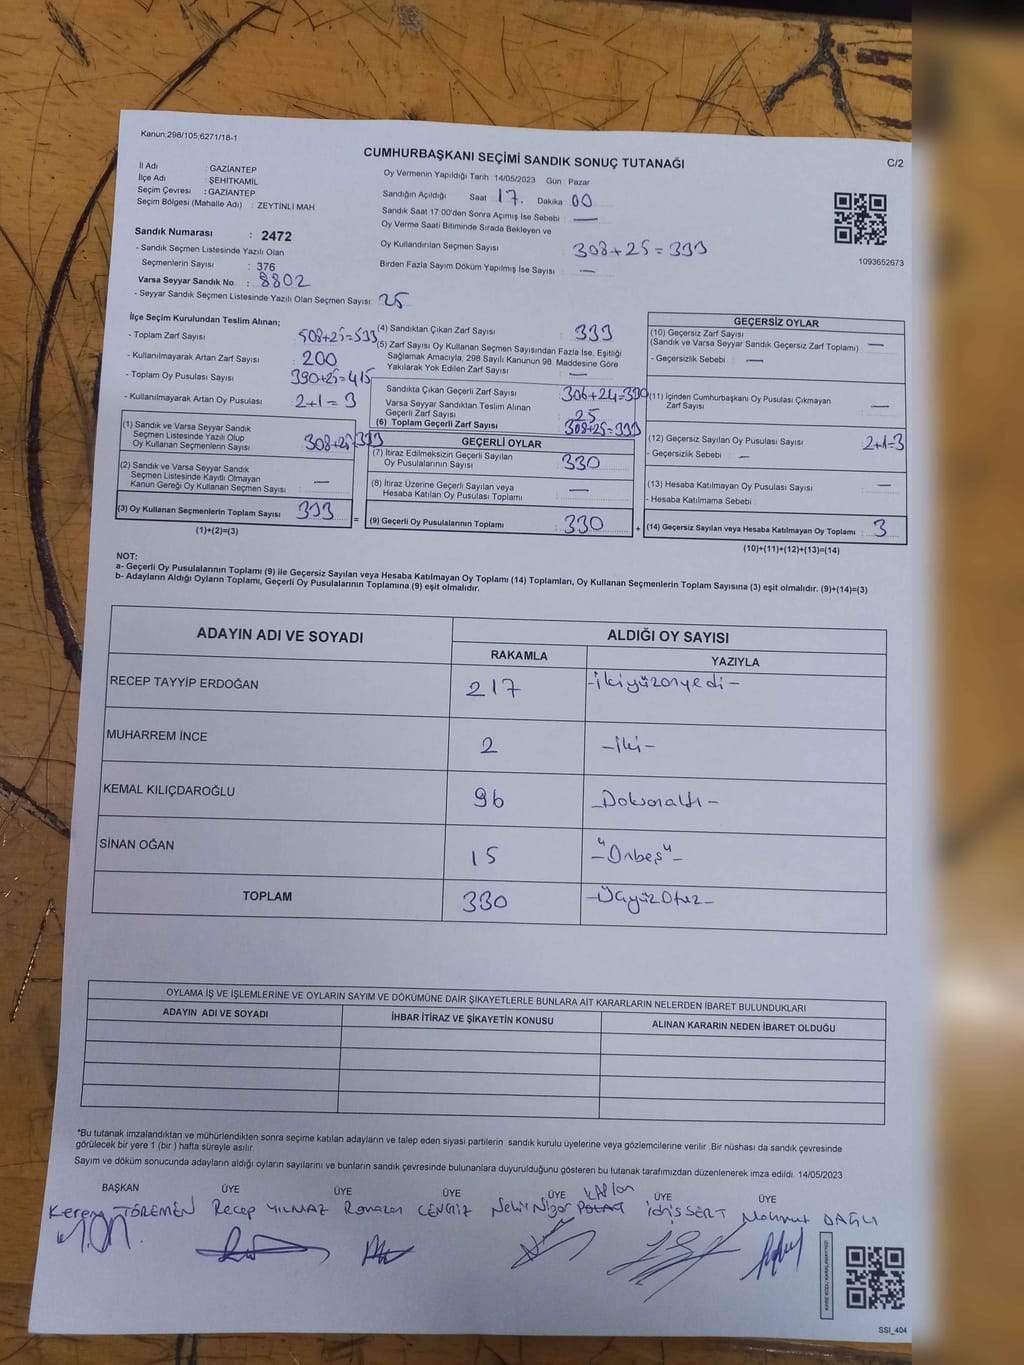 Kanun:298/105,6271/18-1
CUMHURBAŞKANI SEÇİMİ SANDIK SONUÇ TUTANAĞI
C/2
İl Adı : GAZİANTEP
İlçe Adı : ŞEHİTKAMİL
Seçim Çevresi : GAZİANTEP
Seçim Bölgesi (Mahalle Adı) : ZEYTİNLİ MAH.
Oy Vermenin Yapıldığı Tarih :14/05/2023 Gün : Pazar
Sandığın Açıldığı Saat 17. Dakika 00
Sandık Saat 17:00'den Sonra Açılmış İse Sebebi : —
Oy Verme Saati Bitiminde Sırada Bekleyen ve
Oy Kullandırılan Seçmen Sayısı : 308+25=333
Birden Fazla Sayım Döküm Yapılmış İse Sayısı : —
1093652673
Sandık Numarası : 2472
- Sandık Seçmen Listesinde Yazılı Olan
Seçmenlerin Sayısı : 376
Varsa Seyyar Sandık No : 8802
- Seyyar Sandık Seçmen Listesinde Yazılı Olan Seçmen Sayısı: 25
İlçe Seçim Kurulundan Teslim Alınan;
- Toplam Zarf Sayısı : 508+25=533
- Kullanılmayarak Artan Zarf Sayısı : 200
- Toplam Oy Pusulası Sayısı : 390+25=415
- Kullanılmayarak Artan Oy Pusulası : 2+1=3
(1) Sandık ve Varsa Seyyar Sandık
Seçmen Listesinde Yazılı Olup
Oy Kullanan Seçmenlerin Sayısı : 308+25=333
(2) Sandık ve Varsa Seyyar Sandık
Seçmen Listesinde Kayıtlı Olmayan
Kanun Gereği Oy Kullanan Seçmen Sayısı : —
(3) Oy Kullanan Seçmenlerin Toplam Sayısı : 333
(1)+(2)=(3)
(4) Sandıktan Çıkan Zarf Sayısı : 333
(5) Zarf Sayısı Oy Kullanan Seçmen Sayısından Fazla İse, Eşitliği
Sağlamak Amacıyla, 298 Sayılı Kanunun 98. Maddesine Göre
Yakılarak Yok Edilen Zarf Sayısı : —
Sandıkta Çıkan Geçerli Zarf Sayısı : 306+24=330
Varsa Seyyar Sandıktan Teslim Alınan
Geçerli Zarf Sayısı : 25
(6) Toplam Geçerli Zarf Sayısı : 308+25=333
GEÇERLİ OYLAR
(7) İtiraz Edilmeksizin Geçerli Sayılan
Oy Pusulalarının Sayısı : 330
(8) İtiraz Üzerine Geçerli Sayılan veya
Hesaba Katılan Oy Pusulası Toplamı : —
= (9) Geçerli Oy Pusulalarının Toplamı : 330
GEÇERSİZ OYLAR
(10) Geçersiz Zarf Sayısı
(Sandık ve Varsa Seyyar Sandık Geçersiz Zarf Toplamı) : —
- Geçersizlik Sebebi : —
(11) İçinden Cumhurbaşkanı Oy Pusulası Çıkmayan
Zarf Sayısı : —
(12) Geçersiz Sayılan Oy Pusulası Sayısı : 2+1=3
- Geçersizlik Sebebi : —
(13) Hesaba Katılmayan Oy Pusulası Sayısı : —
- Hesaba Katılmama Sebebi :
+ (14) Geçersiz Sayılan veya Hesaba Katılmayan Oy Toplamı : 3
(10)+(11)+(12)+(13)=(14)
NOT:
a- Geçerli Oy Pusulalarının Toplamı (9) ile Geçersiz Sayılan veya Hesaba Katılmayan Oy Toplamı (14) Toplamları, Oy Kullanan Seçmenlerin Toplam Sayısına (3) eşit olmalıdır. (9)+(14)=(3)
b- Adayların Aldığı Oyların Toplamı, Geçerli Oy Pusulalarının Toplamına (9) eşit olmalıdır.
ADAYIN ADI VE SOYADI ALDIĞI OY SAYISI
RAKAMLA YAZIYLA
RECEP TAYYİP ERDOĞAN 217 -ikiyüzonyedi-
MUHARREM İNCE 2 -iki-
KEMAL KILIÇDAROĞLU 96 -Doksanaltı-
SİNAN OĞAN 15 -"Onbeş"-
TOPLAM 330 -Üçyüzotuz-
OYLAMA İŞ VE İŞLEMLERİNE VE OYLARIN SAYIM VE DÖKÜMÜNE DAİR ŞİKAYETLERLE BUNLARA AİT KARARLARIN NELERDEN İBARET BULUNDUKLARI
ADAYIN ADI VE SOYADI İHBAR İTİRAZ VE ŞİKAYETİN KONUSU ALINAN KARARIN NEDEN İBARET OLDUĞU
*Bu tutanak imzalandıktan ve mühürlendikten sonra seçime katılan adayların ve talep eden siyasi partilerin sandık kurulu üyelerine veya gözlemcilerine verilir. Bir nüshası da sandık çevresinde
görülecek bir yere 1 (bir) hafta süreyle asılır.
Sayım ve döküm sonucunda adayların aldığı oyların sayılarını ve bunların sandık çevresinde bulunanlara duyurulduğunu gösteren bu tutanak tarafımızdan düzenlenerek imza edildi. 14/05/2023
BAŞKAN ÜYE ÜYE ÜYE ÜYE ÜYE ÜYE
Kerem TÖREMEN Recep YILMAZ Ramazan CENGİZ Nehir Nigar POLAT KAPLAN İdris SERT Mahmut DAĞLI
SSI_404